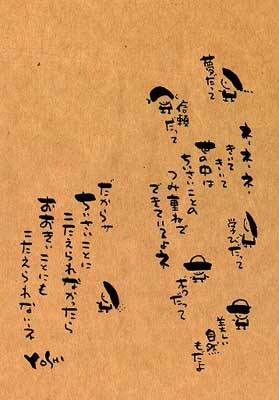 夢だって
ネ、ネ、ネ、
きいて
きいて
世の中は
ちいさいことの
つみ重ねで
できているよネ
信頼
だって
学びだって
だって
美しい
自然
もだよ
だからサ
ちいさいことに
こたえられなかったら
おおきいことにも
こたえられないネ
YOSHI